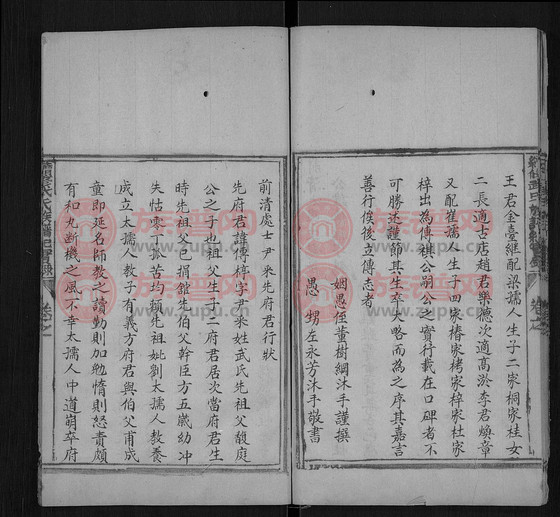 王君金臺繼配梁孺人生子二家桐家桂女
二長適古店趙君樂德次適高淤李君煥章
又配崔孺人生子四家椿家栲家梓家杜家
梓出為傳祺公嗣公之實行載在口碑者不
可勝述謹節其生卒大略而為之序其嘉言
善行俟後立傳志者
姻愚侄董樹綱沐手謹撰
愚甥左永芳沐手敬書
前清處士尹釆先府君行狀
先府君諱傳㮠字尹釆姓武氏先祖父馥庭
公之子也祖父生子二府君居次當府君生
時先祖父已捐館先伯父幹臣方五歲幼冲
失怙零丁孤苦均賴先祖妣劉太孺人教養
成立太孺人教子有義方府君與伯父甫成
童即延名師教之讀勤則加勉惰則怒責頗
有和丸斷機之風不幸太孺人中道萌卒府
族譜网
www.zupu.cn
族譜网
www.zupu.cn